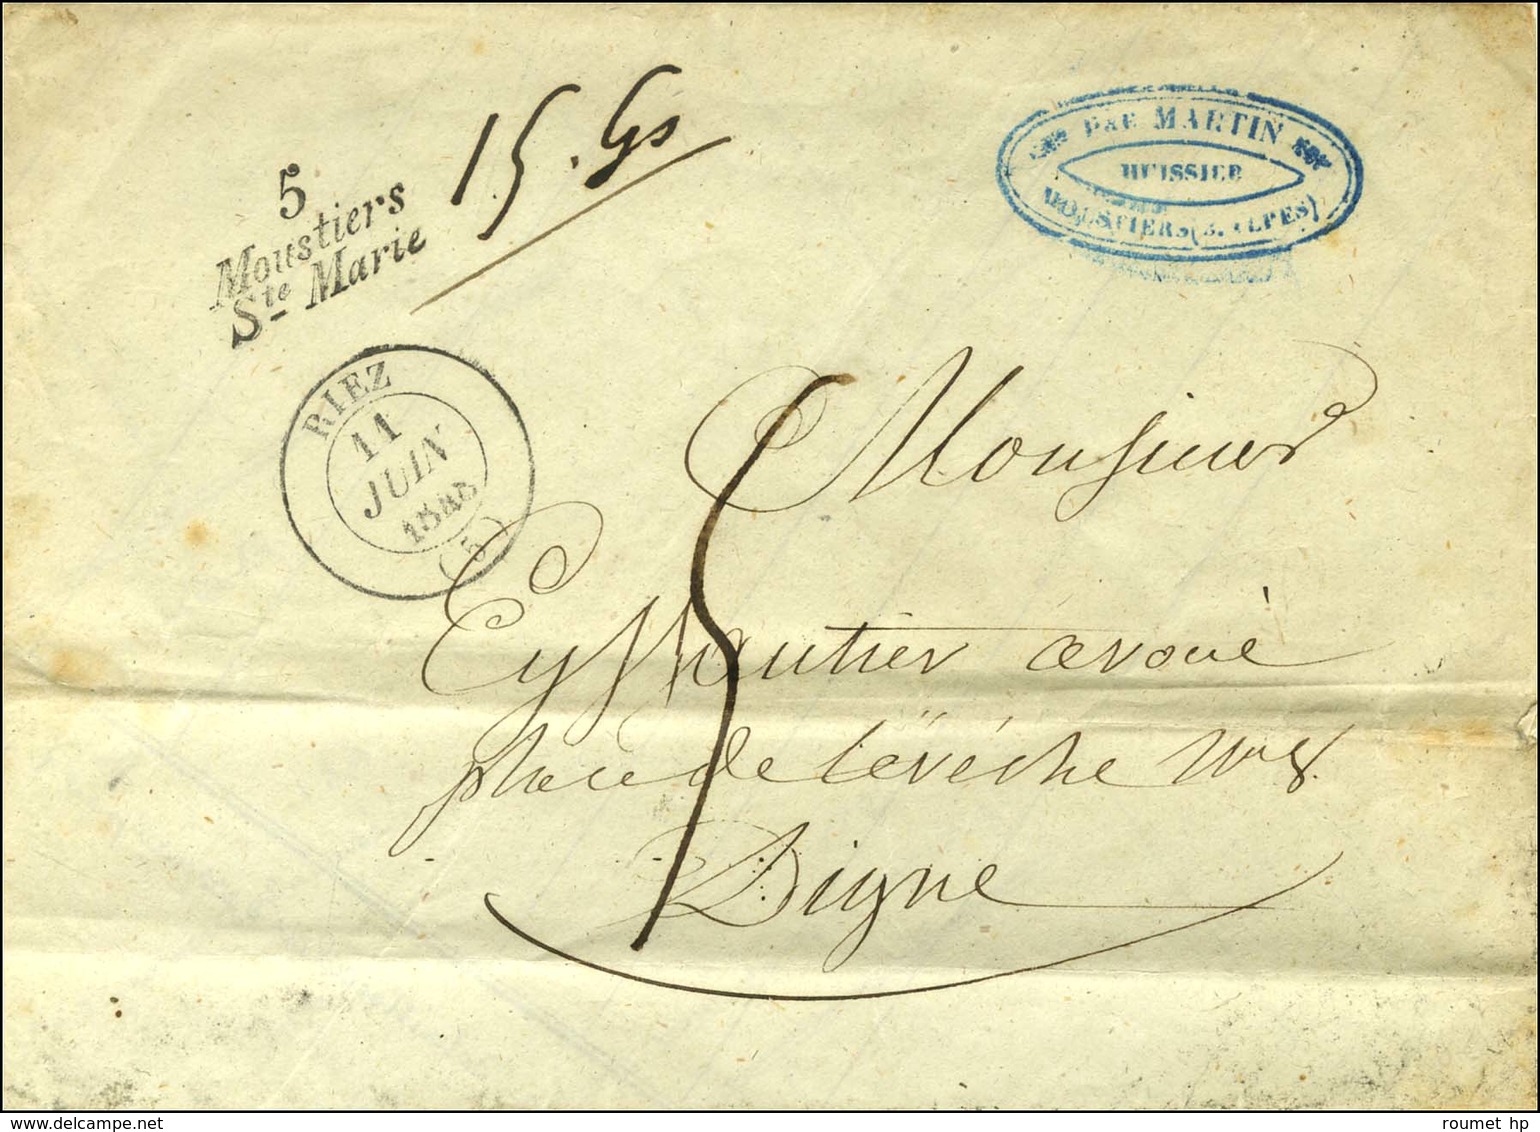 15. Gs
5
Moustiers
Ste Marie
MARTIN
HUISSIER
MOUSTIERS (B. ALPES)
RIEZ
11
JUIN
1848
(5)
Monsieur
Eyssautier avoué
place de l'évêché
Digne
5
roumet hp